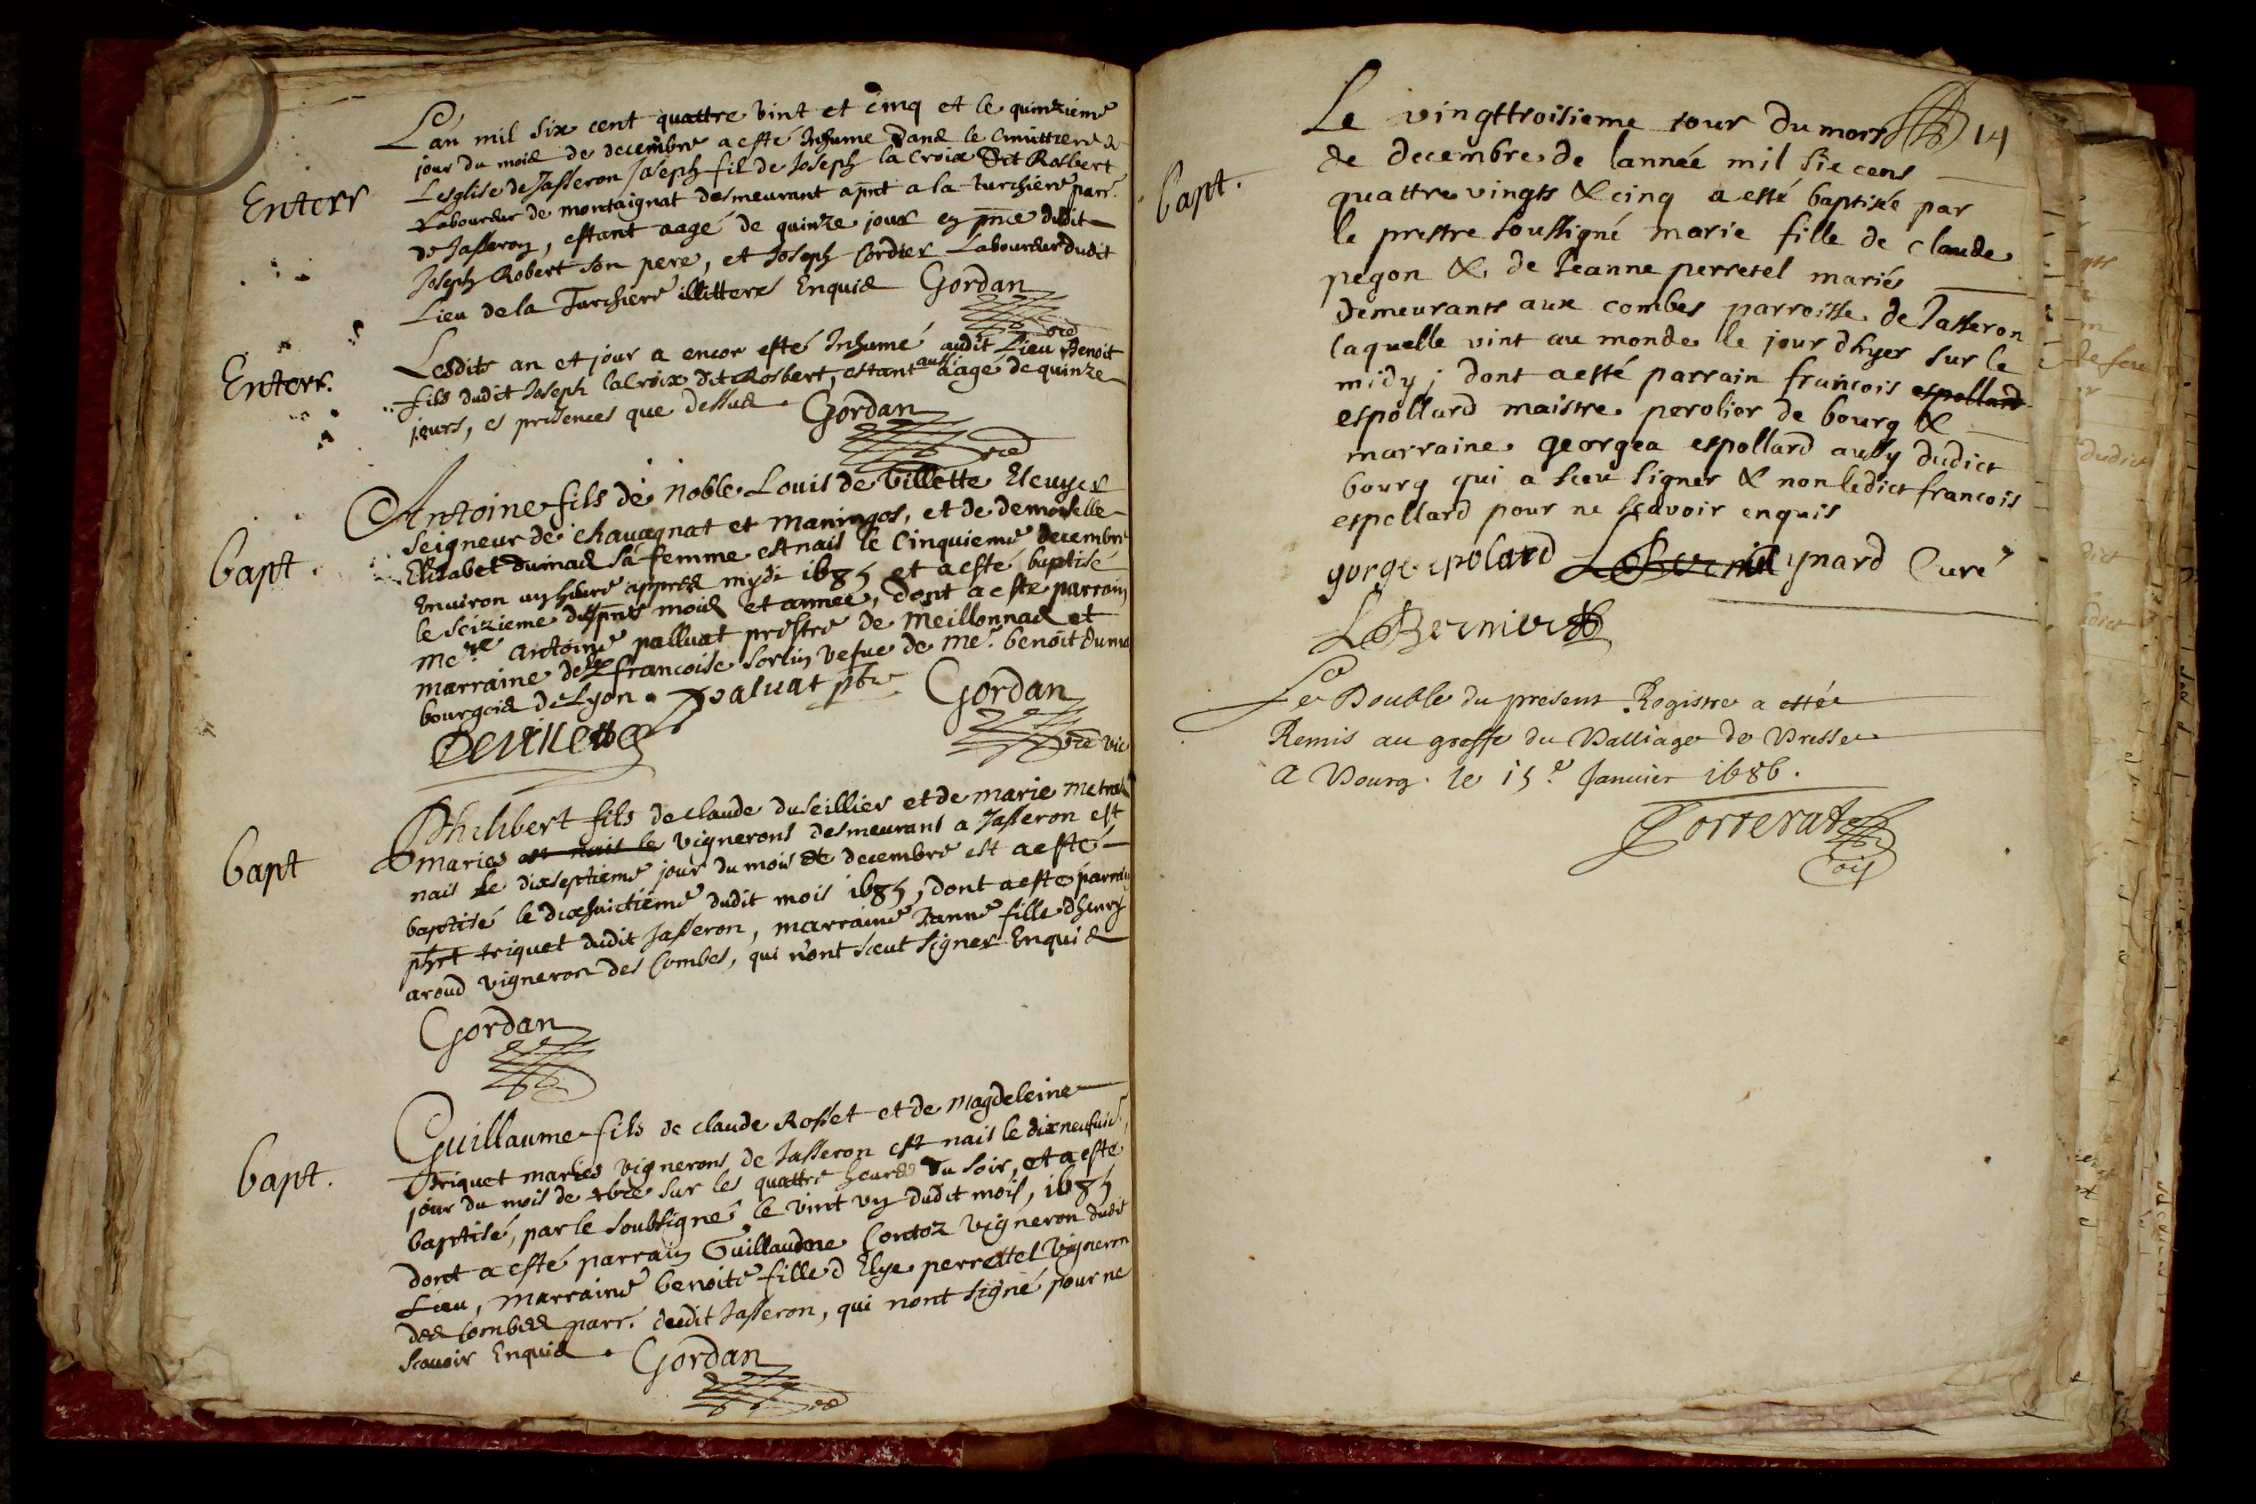 Enterr
Lan mil six cent quattre vint et cinq et le quinzieme
jour du mois de decembre a esté Inhume dans le Cimittiere de
Lesglise de Jasseron Joseph fil de Joseph la Croix Dit Robert
Laboureur de montaignat desmeurant apnt a la turchiere parr.
de Jasseron, estant aagé de quinze jour en pnce dudit
Joseph Robert son pere, et Joseph Cordier Laboureur dudit
Lieu de la Turchiere illitteres Enquis Gordan
vre
Enterr.
Lesdits an et jour a encor esté Inhumé audit Lieu Benoit
fils dudit Joseph la Croix dit Robert, estant aussi aagé de quinze
jours, es presences que dessus. Gordan
vre
bapt.
Antoine fils de Noble Louis de Villette Escuyer
Seigneur de chavagnat et Maningos, et de demoiselle
Elizabet dumas sa femme est nais le Cinquieme decembre
Environ un heure appres mydi 1685 et a esté baptisé
le seizieme du pnt mois et année, dont a este parrain
me.re Antoine palluat prestre de Meillonnas et
marraine de.lle francoise Sorlin vefue de me.r benoit duma
bourgeois de Lyon. paluat pbre Gordan
Devillette vre vic
bapt
Philibert fils de claude duseillier et de marie metra
maries est nais le vignerons desmeurans a Jasseron est
nais le dixseptieme jour du mois de decembre est a esté
baptisé le dixhuictieme dudit mois 1685, dont a este parrain
phrt triquet dudit Jasseron, marraine Janne fille dhenry
aroud vigneron des Combes, qui n'ont sceut signer Enquis
Gordan
bapt.
Guillaume fils de claude Rosset et de Magdeleine
Triquet maries vignerons de Jasseron est nais le dixneufuie
jour du mois de xbre sur les quattre heures du soir, et a este
baptisé, par le soubsigné le vint un dudit mois, 1685
dont a esté parrain Guillaume Contoz vigneron dudit
Lieu, marraine benoite fille d Elye perrettel vigneron
des Combes parr. dudit Jasseron, qui nont signé pour ne
scavoir Enquis. Gordan
vre
14
bapt.
Le vingttroisieme iour du mois
de decembre de lannée mil sie cens
quattre vingts & cinq a esté baptisée par
le prestre soussigné marie fille de claude
pegon & de Jeanne perretel mariés
demeurants aux combes parroisse de Jasseron
laquelle vint au monde le jour dhyer sur le
midy; dont a esté parrain francois espollard
espollard maistre perolier de bourg &
marraine georgea espollard aussy dudict
bourg qui a sceu signer & non ledict francois
espollard pour ne scavoir enquis
gorge epolard ynard Curé
LBernier
Le Double du present Registre a estée
Remis au greffe du Balliage de Bresse
A Bourg. le 15.e Janvier 1686.
Correrat